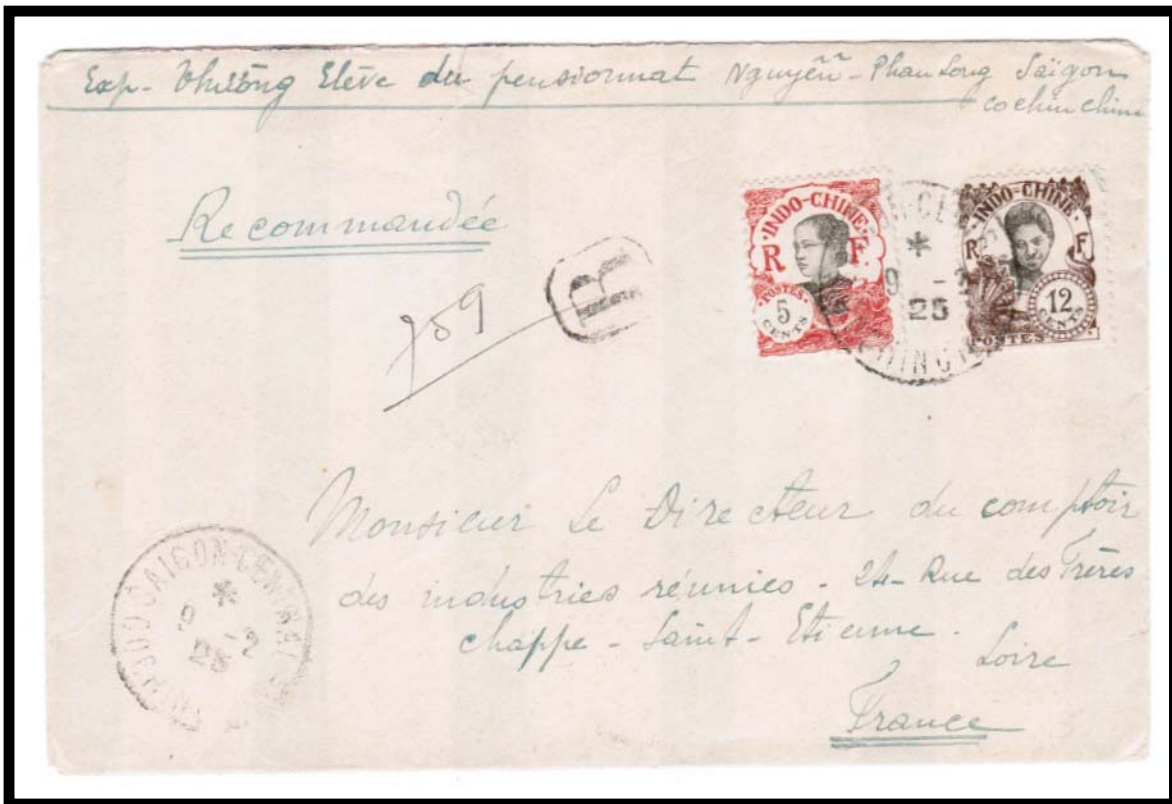 Exp- Élève du pensionnat Nguyễn-Phan Long Saïgon
Cochinchine
Recommandée
R
INDO-CHINE
R F
POSTES
5
CENTS
INDO-CHINE
R F
12
CENTS
POSTES
*
9 - 2
25
Monsieur Le Directeur du comptoir
des industries réunies - 24- Rue des Frères
Chappe - Saint-Etienne.
Loire
France
SAIGON-CENTRAL
*
9 - 2
25